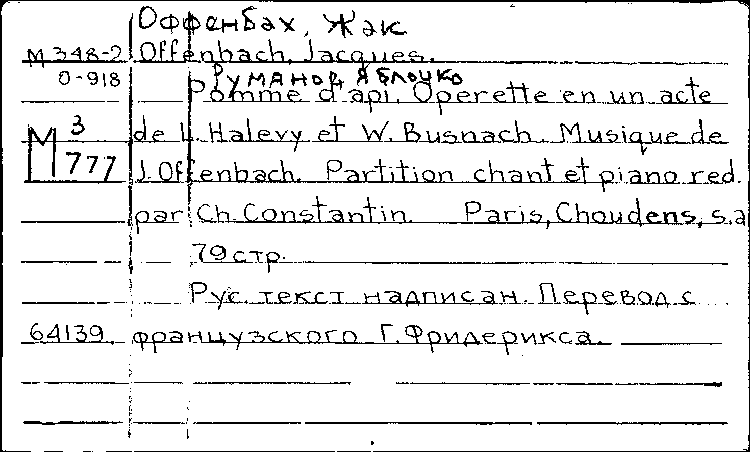 Оффенбах, Жак
М 348-2 Offenbach, Jacques.
О-918 Румяное яблочко
Pomme d'api. Operette en un acte
М 3 de L. Halevy et W. Busnach. Musique de
777 J. Offenbach. Partition chant et piano red.
par Ch. Constantin. Paris, Choudens, s.a
79 стр.
Рус. текст надписан. Перевод с
64139. французского Г. Фридерикса.